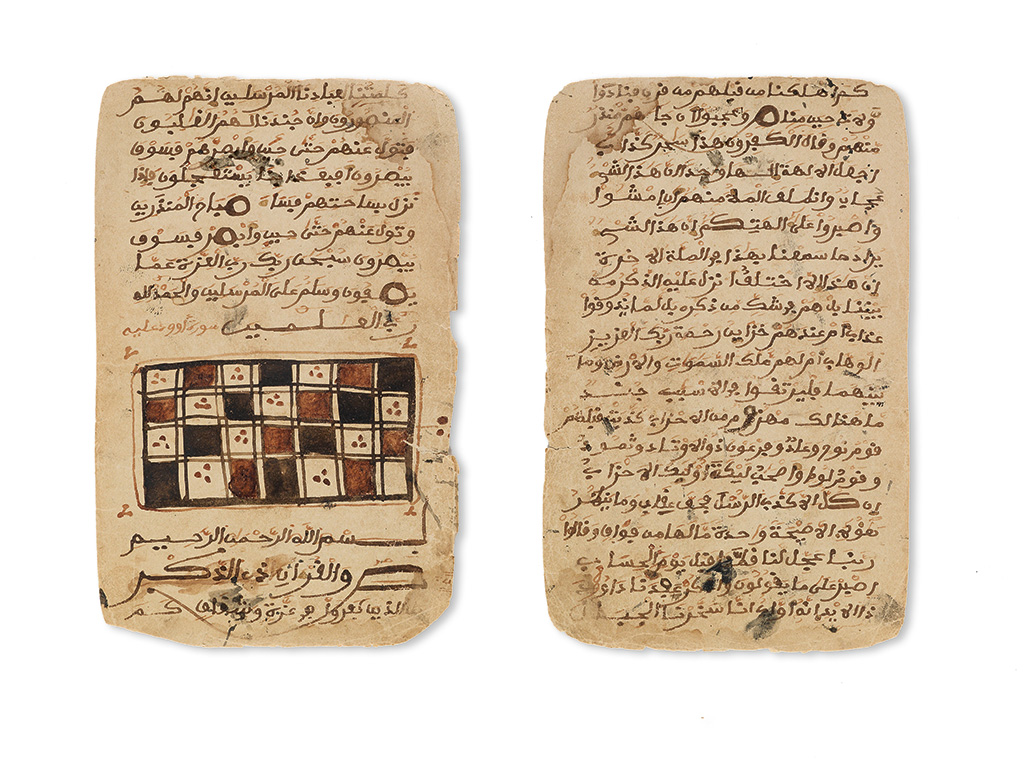 كلمتنا لعبادنا المرسلين إنهم لهم
المنصورون وإن جندنا لهم الغلبون
فتول عنهم حتى حين وأبصرهم فسوف
يبصرون أفبعذابنا يستعجلون فإذا
نزل بساحتهم فساء صباح المنذرين
وتول عنهم حتى حين وأبصر فسوف
يبصرون سبحن ربك رب العزة عما
يصفون وسلم على المرسلين والحمد لله
رب العلمين
بسم الله الرحمن الرحيم
ص والقرءان ذي الذكر
بل الذين كفروا في عزة وشقاق كم
كم أهلكنا من قبلهم من قرن فنادوا
ولات حين مناص وعجبوا أن جاءهم منذر
منهم وقال الكفرون هذا سحر كذاب
أجعل الالهة إلها وحدا إن هذا لشيء
عجاب وانطلق الملأ منهم أن امشوا
واصبروا على ءالهتكم إن هذا لشيء
يراد ما سمعنا بهذا في الملة الاخرة
إن هذا إلا اختلق أءنزل عليه الذكر من
بيننا بل هم في شك من ذكري بل لما يذوقوا
عذاب أم عندهم خزاين رحمة ربك العزيز
الوهاب أم لهم ملك السموت والارض وما
بينهما فليرتقوا في الاسبب جند
ما هنالك مهزوم من الاحزاب كذبت قبلهم
قوم نوح وعاد وفرعون ذو الاوتاد وثمود
وقوم لوط وأصحب ليكة أوليك الاحزاب
إن كل إلا كذب الرسل فحق عقاب وما ينظر
هؤلاء إلا صيحة وحدة ما لها من فواق وقالوا
ربنا عجل لنا قطنا قبل يوم الحساب
اصبر على ما يقولون واذكر عبدنا داود
ذا الايد إنه أواب إنا سخرنا الجبال